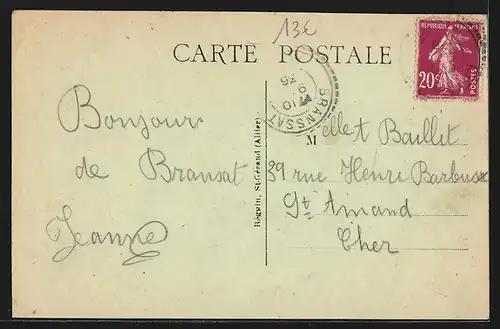 13€
CARTE POSTALE
REPUBLIQUE FRANÇAISE
20c
POSTES
BRANSSAT
9 10
36
Bonjour
de Bransat
Jeanne
Réguin, St-Gérand (Allier)
Melle t Baillit
39 rue Henri Barbusse
St Amand
Cher